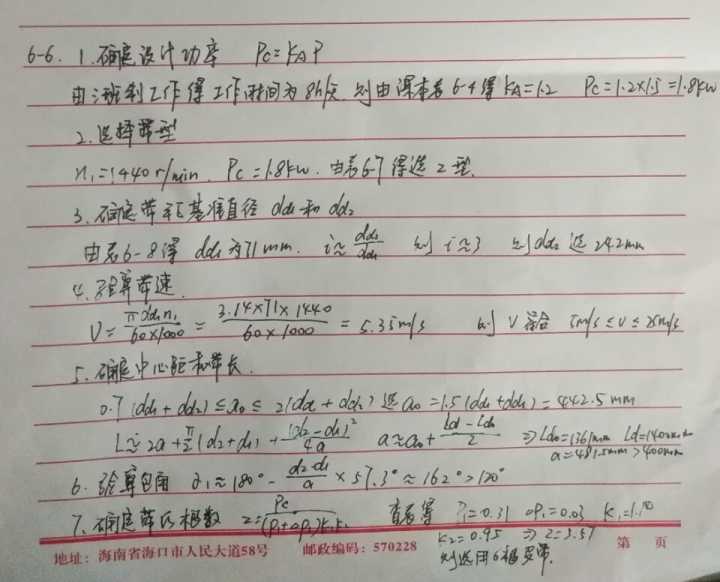 6-6. 1.确定设计功率 Pc=KAP
由三班制工作得工作时间为8h/天 则由课本表6-4得KA=1.2 Pc=1.2×1.5=1.8kw
2.选择带型
n₁=1440r/min. Pc=1.8kw. 由表6-7得选Z型.
3.确定带轮基准直径dd₁和dd₂
由表6-8得 dd₁为71mm. i≈dd₂/dd₁ 则i≈3 则dd₂选242mm
4.验算带速.
V=πdd₁n₁/60×1000=3.14×71×1440/60×1000=5.35m/s 则V符合 5m/s≤v≤25m/s
5.确定中心距和带长.
0.7(dd₁+dd₂)≤a₀≤2(dd₁+dd₂) 选a₀=1.5(dd₁+dd₂)=442.5mm
L≈2a+π/2(d₂+d₁)+(d₂-d₁)²/4a a≈a₀+Ld-Ld₀/2 ⇒Ld₀=1361mm Ld=1400mm
a=481.5mm>400mm
6.验算包角 α₁≈180°-d₂-d₁/a×57.3°≈162°>120°
7.确定带的根数 z=Pc/(P₁+ΔP₁)K₁K₂ 查表得 P₁=0.31 ΔP₁=0.03 K₁=1.10
K₂=0.95 ⇒Z=3.57
则选用6根带.
地址：海南省海口市人民大道58号 邮政编码：570228 第 页